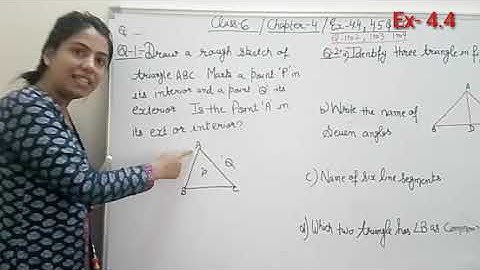 Q
Class-6 / Chapter-4 / Ex-4.4, 4.5 Q
Q.1 to 2, 1 to 3 1 to 4
Ex- 4.4
Q-1- Draw a rough sketch of
triangle ABC. Mark a point 'P' in
its interior and a point 'Q' its
exterior Is the Point 'A' in
its ext or interior?
A
'Q
P
B
C
Identify three triangle in fi
A
B
D
b) Write the name of
Seven angles
c) Name of six line segments
d) Which two triangle has ∠B as Common